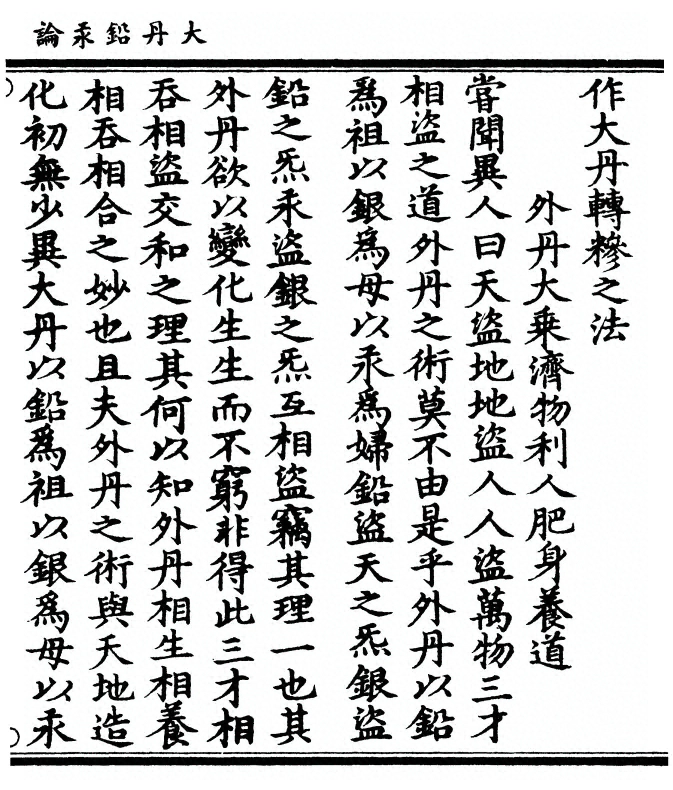 大丹鉛汞論
作大丹轉糝之法
外丹大乘濟物利人肥身養道
嘗聞異人曰天盜地地盜人人盜萬物三才
相盜之道外丹之術莫不由是乎外丹以鉛
爲祖以銀爲母以汞爲婦鉛盜天之炁銀盜
鉛之炁汞盜銀之炁互相盜竊其理一也其
外丹欲以變化生生而不窮非得此三才相
吞相盜交和之理其何以知外丹相生相養
相吞相合之妙也且夫外丹之術與天地造
化初無少異大丹以鉛爲祖以銀爲母以汞